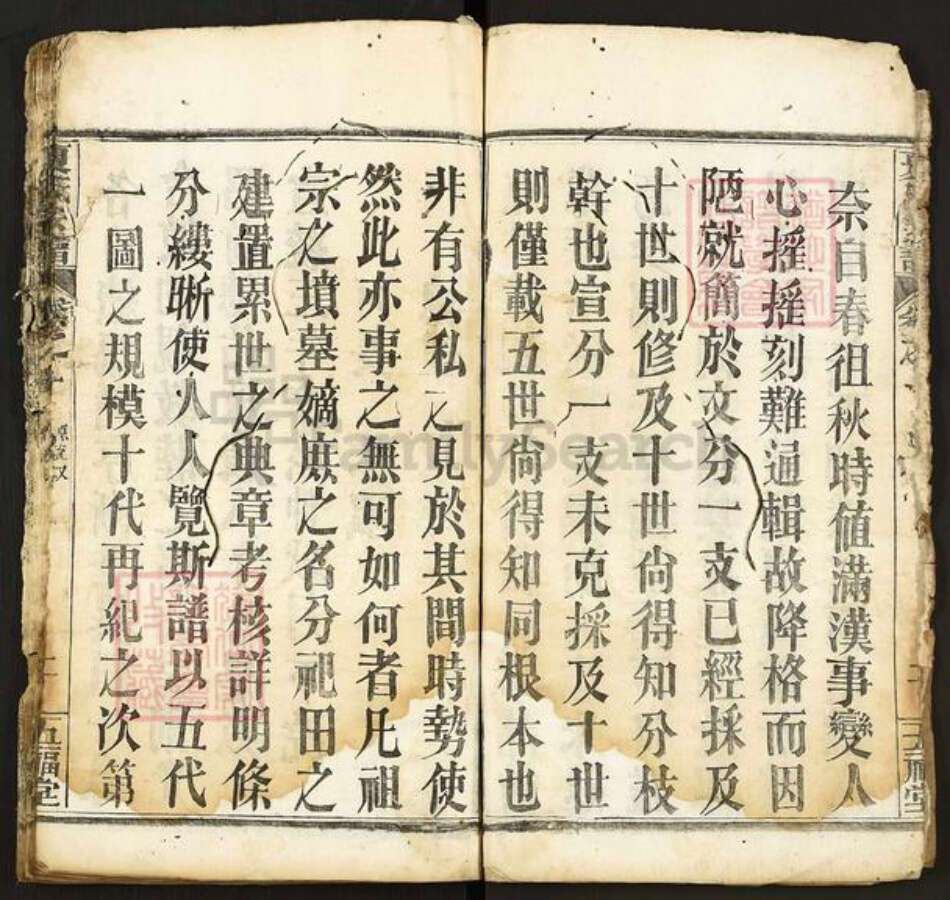 奈自春徂秋時值滿漢事變人
心搖搖刻難通輯故降格而因
陋就簡於文分一支已經採及
十世則修及十世尙得知分枝
幹也宣分一支未克採及十世
則僅載五世尙得知同根本也
非有公私之見於其間時勢使
然此亦事之無可如何者凡祖
宗之墳墓嫡庶之名分祀田之
建置累世之典章考核詳明條
分縷晰使人人覽斯譜以五代
一圖之規模十代再紀之次第
五福堂
五福堂
FamilySearch